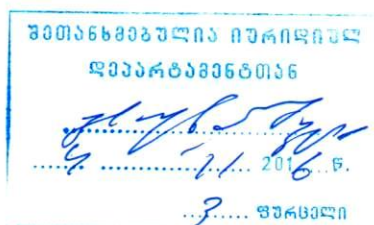 შეთანხმებულია იურიდიულ
დეპარტამენტთან
4 11 2016 წ.
3 ფურცელი